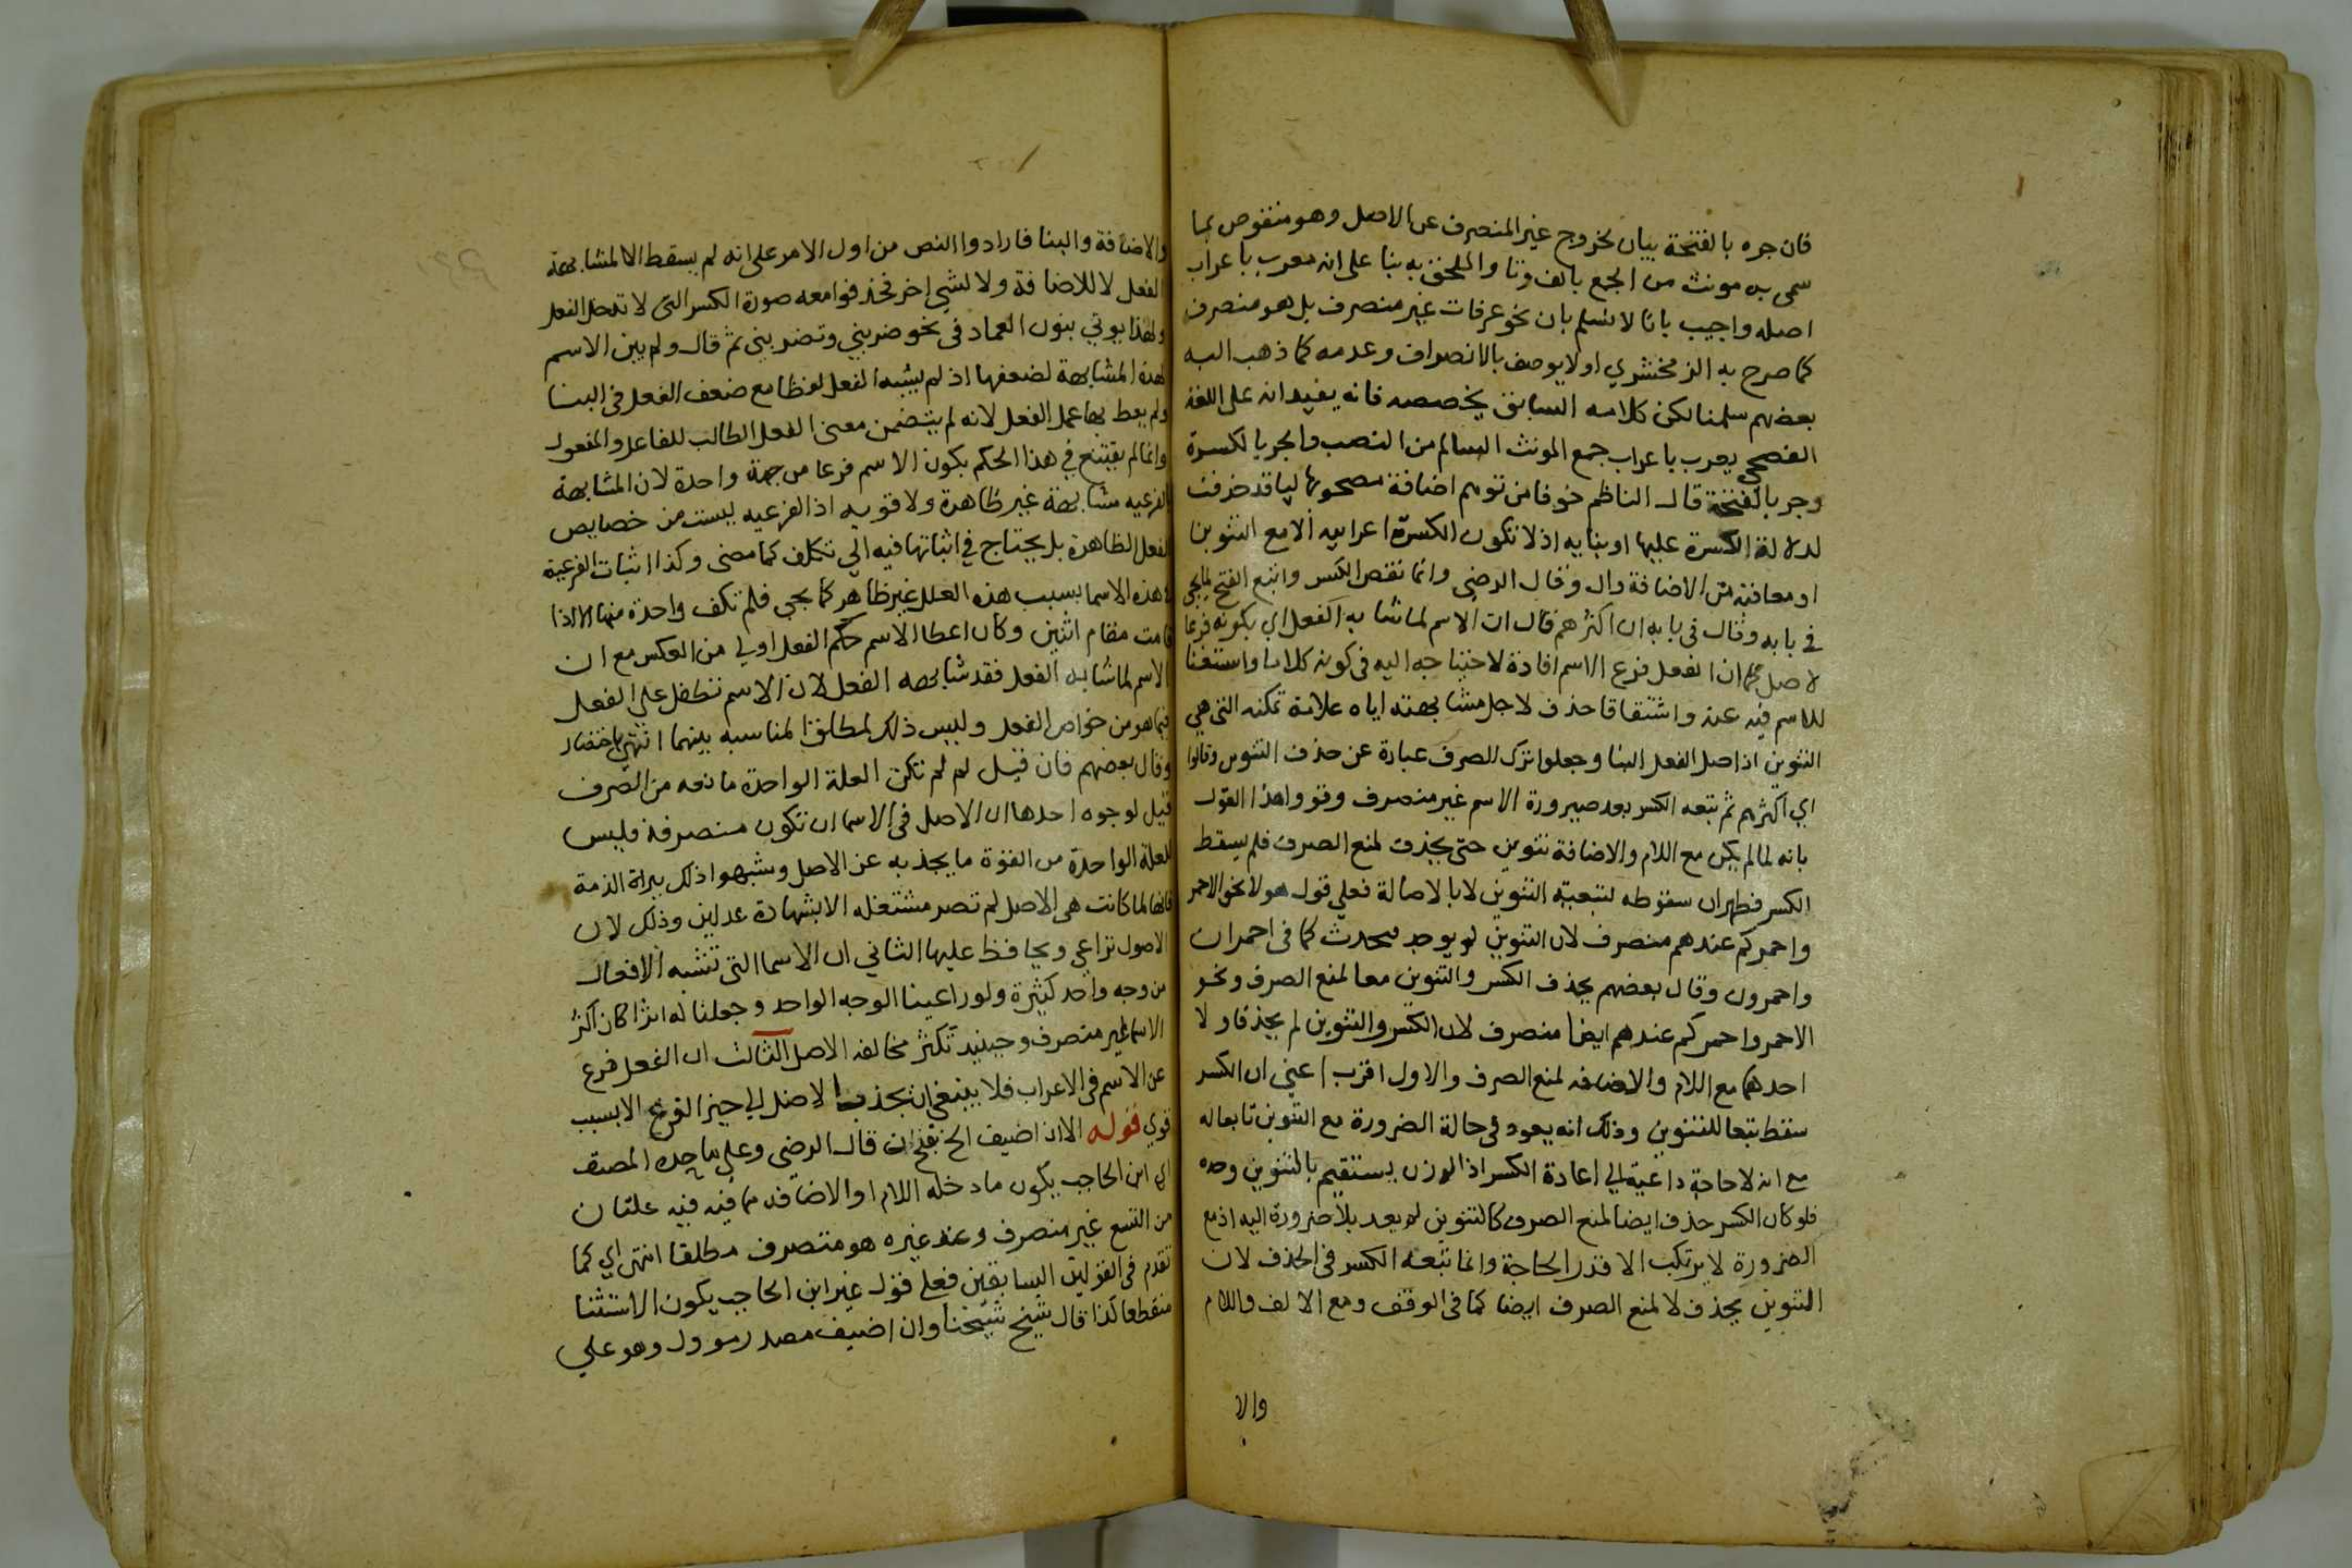 فان جره بالفتحة بيان لخروج غير المنصرف عن الاصل وهو منقوص بما
سمى به مونث من الجمع بالف وتا والملحق به بنا على انه معرب باعراب
اصله واجيب بانا لا نسلم بان نحو عرفات غير منصرف بل هو منصرف
كما صرح به الزمخشري او لا يوصف بالانصراف وعدمه كما ذهب اليه
بعضهم سلمنا لكن كلامه السابق يخصصه فانه يفيد انه على اللغة
الفصحي يعرب باعراب جمع المونث السالم من النصب والجر بالكسرة
وجر بالفتحة قال الناظم خوفا من توهم اضافة مصحوبها ليا قد حذفت
لدلالة الكسرة عليها او بنايه اذ لا تكون الكسرة اعرابيه الا مع التنوين
او معاقبه من الاضافة وال وقال الرضي وانما نقص الكسر واتبع الفتح لما يجي
في بابه وقال في بابه ان اكثرهم قال ان الاسم لما شابه الفعل اي بكونه فرعا
لاصل كما ان الفعل فرع الاسم افادة لاحتياجه اليه في كونه كلاما واستغنا
للاسم فيه عنه واشتقاقا حذف لاجل مشابهته اياه علامة تمكنه التي هي
التنوين اذ اصل الفعل البنا وجعلوا ترك الصرف عبارة عن حذف التنوين وقالوا
اي اكثرهم ثم تبعه الكسر بعد صيرورة الاسم غير منصرف وقووا هذا القول
بانه لما لم يكن مع اللام والاضافة تنوين حتى يحذف لمنع الصرف فلم يسقط
الكسر فظهر ان سقوطه لتبعية التنوين لا بالاصالة فعلى قول هولا نحو الاحمر
واحمركم عندهم منصرف لان التنوين لم يوجد فيحدث كما في احمران
واحمرون وقال بعضهم يحذف الكسر والتنوين معا لمنع الصرف ونحو
الاحمر واحمركم عندهم ايضا منصرف لان الكسر والتنوين لم يحذفا ولا
احدهما مع اللام والاضافه لمنع الصرف والاول اقرب اعني ان الكسر
سقط تبعا للتنوين وذلك انه يعود في حالة الضرورة مع التنوين تابعا له
مع انه لا حاجة داعية الي اعادة الكسر اذ الوزن يستقيم بالتنوين وحده
فلو كان الكسر حذف ايضا لمنع الصرف كالتنوين لم يعد بلا ضرورة اليه اذ مع
الضرورة لا يرتكب الا قدر الحاجة وانما تبعه الكسر في الحذف لان
التنوين يحذف لا لمنع الصرف ايضا كما في الوقف ومع الالف واللام
والا
والاضافة والبنا فارادوا النص من اول الامر على انه لم يسقط الا لمشابهة
الفعل لا للاضافة ولا لشي اخر فحذفوا معه صورة الكسر التي لا تدخل الفعل
ولهذا يوتي بنون العماد في نحو ضربني وتضربيني ثم قال ولم يبن الاسم
لهذه المشابهة لضعفها اذ لم يشبه الفعل لفظا مع ضعف الفعل في البنا
ولم يعط بها عمل الفعل لانه لم يتضمن معنى الفعل الطالب للفاعل والمفعول
وانما لم يقتنع في هذا الحكم بكون الاسم فرعا من جهة واحدة لان المشابهة
الفرعيه مشابهة غير ظاهرة ولا قويه اذ الفرعيه ليست من خصايص
الفعل الظاهرة بل يحتاج في اثباتها فيه الي تكلف كما مضى وكذا اثبات الفرعية
في هذه الاسما بسبب هذه العلل غير ظاهر كما يجي فلم تكف واحدة منها الا اذا
قامت مقام اثنين وكان اعطا الاسم حكم الفعل اولي من العكس مع ان
الاسم لما شابه الفعل فقد شابهه الفعل لان الاسم تطفل على الفعل
فيما هو من خواص الفعل وليس ذلك لمطلق المناسبه بينهما انتهي باختصار
وقال بعضهم فان قيل لم لم تكن العلة الواحدة مانعه من الصرف
قيل لوجوه احدها ان الاصل في الاسما ان تكون منصرفة فليس
للعلة الواحدة من القوة ما يجذبه عن الاصل وشبهوا ذلك ببراة الذمة
فانها لما كانت هي الاصل لم تصر مشتغله الا بشهادة عدلين وذلك لان
الاصول تراعي ويحافظ عليها الثاني ان الاسما التي تشبه الافعال
من وجه واحد كثيرة ولو راعينا الوجه الواحد وجعلنا له اثرا كان اكثر
الاسما غير منصرف وحينيد تكثر مخالفه الاصل الثالث ان الفعل فرع
عن الاسم في الاعراب فلا ينبغي ان يجذب الاصل الي حيز الفرع الا بسبب
قوي قوله الا اذا اضيف الخ بفتح ان قال الرضي وعلى ما حده المصنف
اي ابن الحاجب يكون ما دخله اللام او الاضافه مما فيه علتان
من التسع غير منصرف وعند غيره هو منصرف مطلقا انتهي اي كما
تقدم في القولين السابقين فعلى قول غير ابن الحاجب يكون الاستثنا
منقطعا كذا قال شيخ شيخنا وان اضيف مصدر موول وهو علي